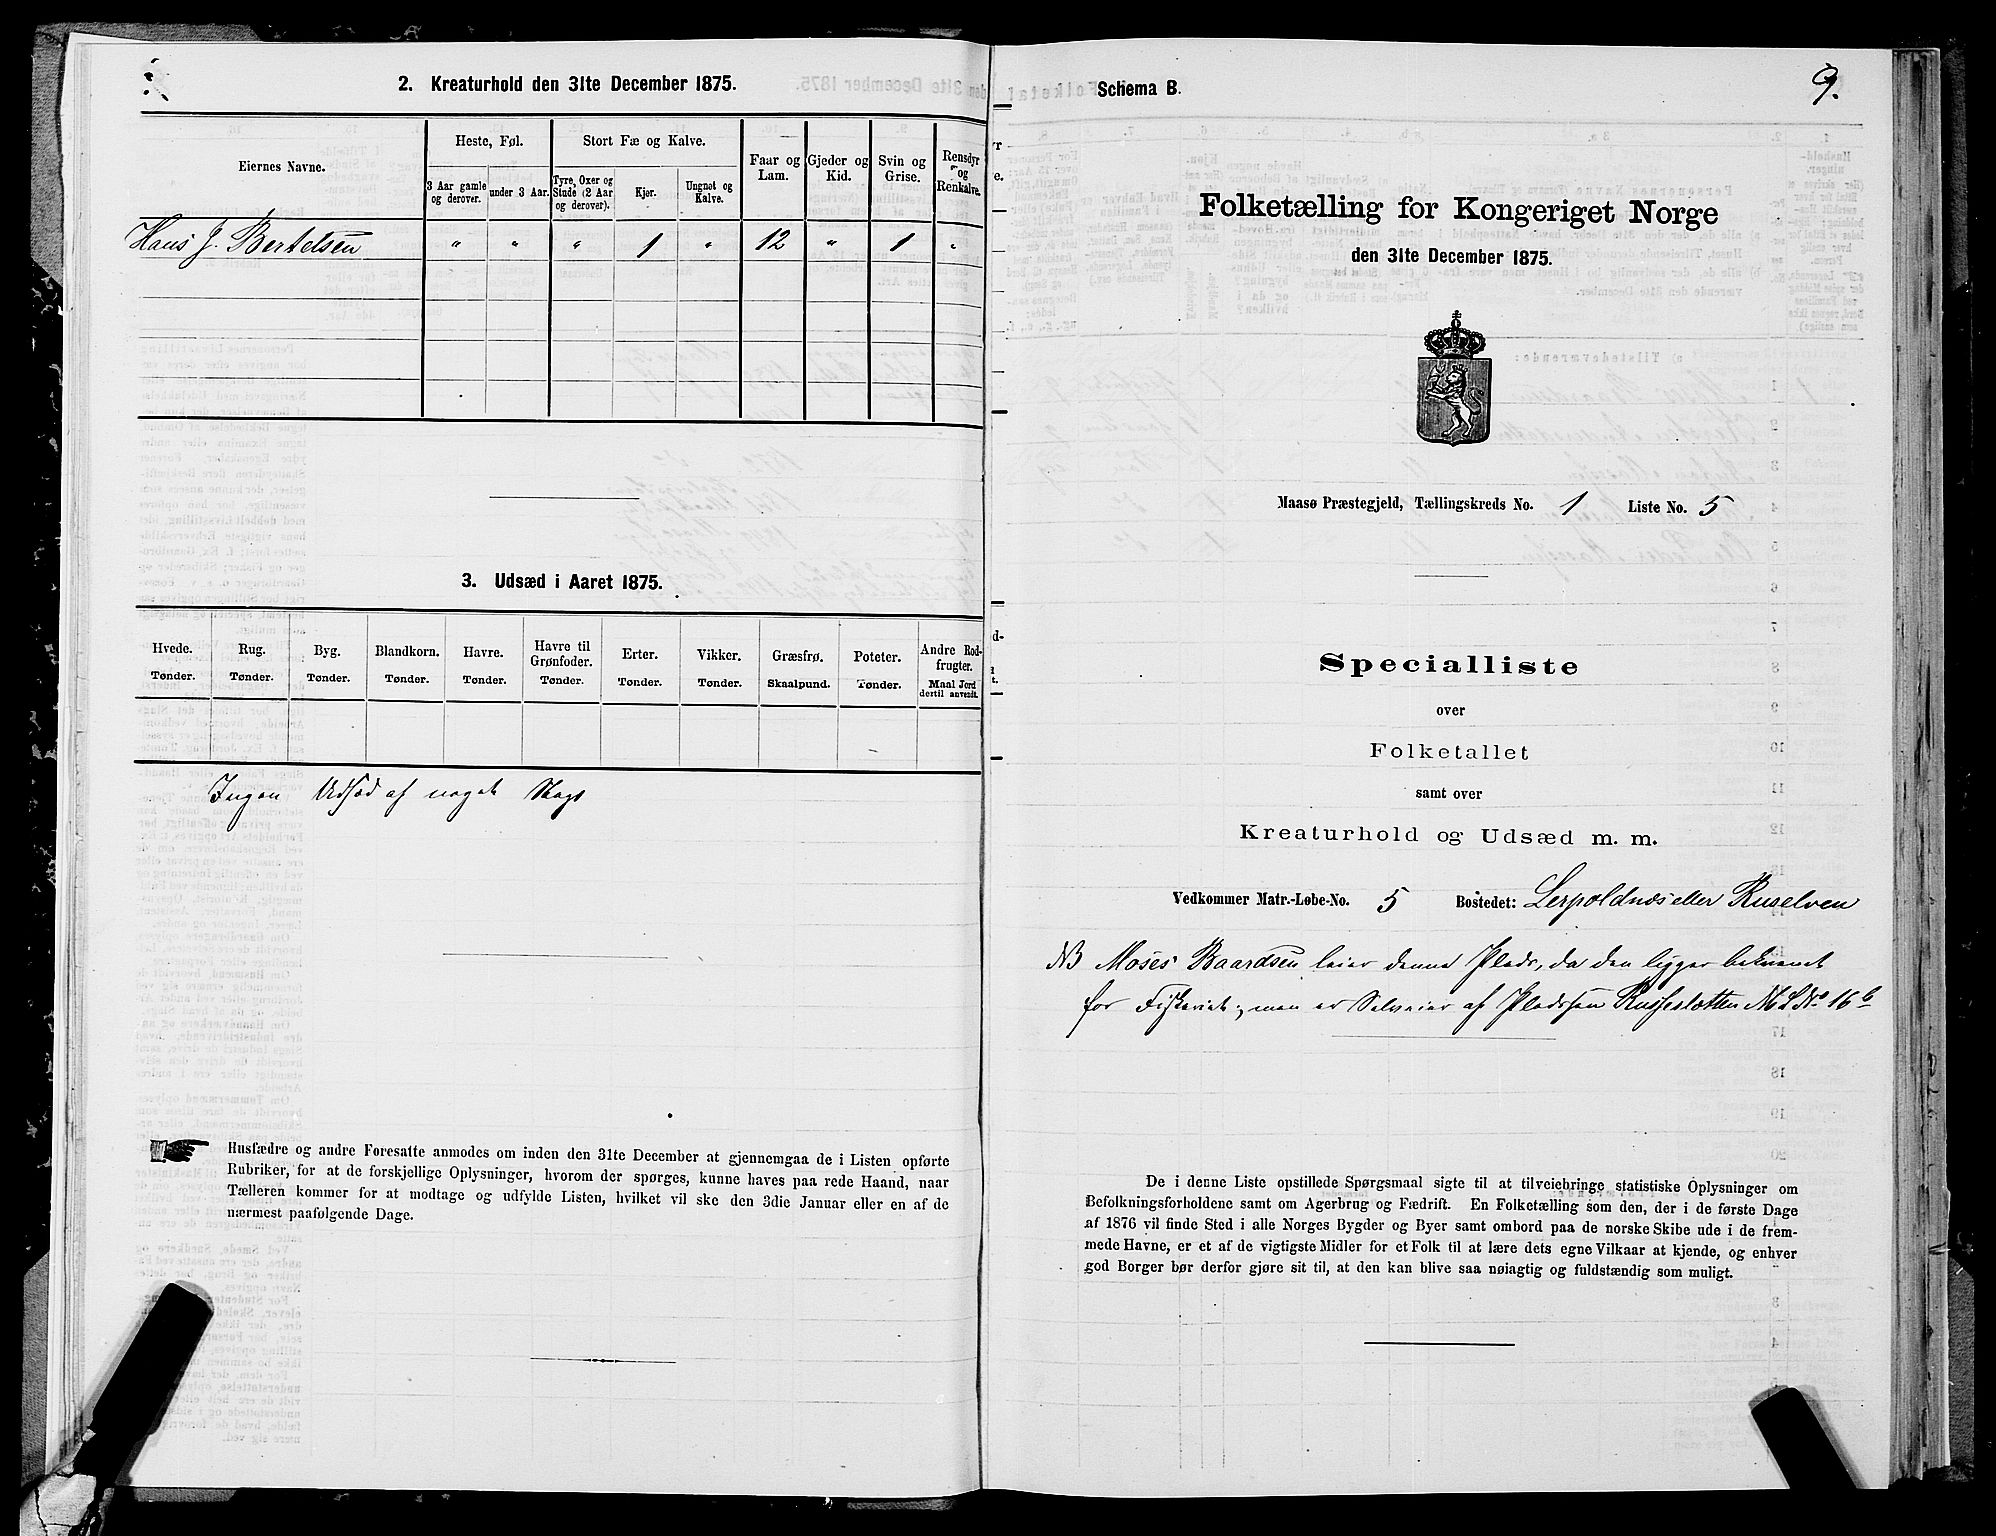 2. Kreaturhold den 31te December 1875.
Eiernes Navne.
Heste, Føl.
Stort Fæ og Kalve.
Faar og Lam.
Gjeder og Kid.
Svin og Grise.
Rensdyr og Renkalve.
3 Aar gamle og derover.
under 3 Aar.
Tyre, Oxer og Stude (2 Aar og derover).
Kjør.
Ungnøt og Kalve.
Hans J. Bertelsen " " " 1 " 12 " 1 "
3. Udsæd i Aaret 1875.
Hvede. Rug. Byg. Blandkorn. Havre. Havre til Grønfoder. Erter. Vikker. Græsfrø. Poteter. Andre Rodfrugter.
Tønder. Tønder. Tønder. Tønder. Tønder. Tønder. Tønder. Tønder. Skaalpund. Tønder. Maal Jord dertil anvendt.
Ingen Udsæd af noget Slags
Husfædre og andre Foresatte anmodes om inden den 31te December at gjennemgaa de i Listen opførte
Rubriker, for at de forskjellige Oplysninger, hvorom der spørges, kunne haves paa rede Haand, naar
Tælleren kommer for at modtage og udfylde Listen, hvilket vil ske den 3die Januar eller en af de
nærmest paafølgende Dage.
Schema B.
9.
Folketælling for Kongeriget Norge
den 31te December 1875.
Maasø Præstegjeld, Tællingskreds No. 1 Liste No. 5
Specialliste
over
Folketallet
samt over
Kreaturhold og Udsæd m. m.
Vedkommer Matr.-Løbe-No. 5 Bostedet: Lerpoldnæs eller Ruselven
NB Moses Baardsen leier denne Plads, da den ligger bekvemt
for Fiskeriet; men er Selveier af Pladsen Russesletten M L No 16 b
De i denne Liste opstillede Spørgsmaal sigte til at tilveiebringe statistiske Oplysninger om
Befolkningsforholdene samt om Agerbrug og Fædrift. En Folketælling som den, der i de første Dage
af 1876 vil finde Sted i alle Norges Bygder og Byer samt ombord paa de norske Skibe ude i de frem-
mede Havne, er et af de vigtigste Midler for et Folk til at lære dets egne Vilkaar at kjende, og enhver
god Borger bør derfor gjøre sit til, at den kan blive saa nøiagtig og fuldstændig som muligt.